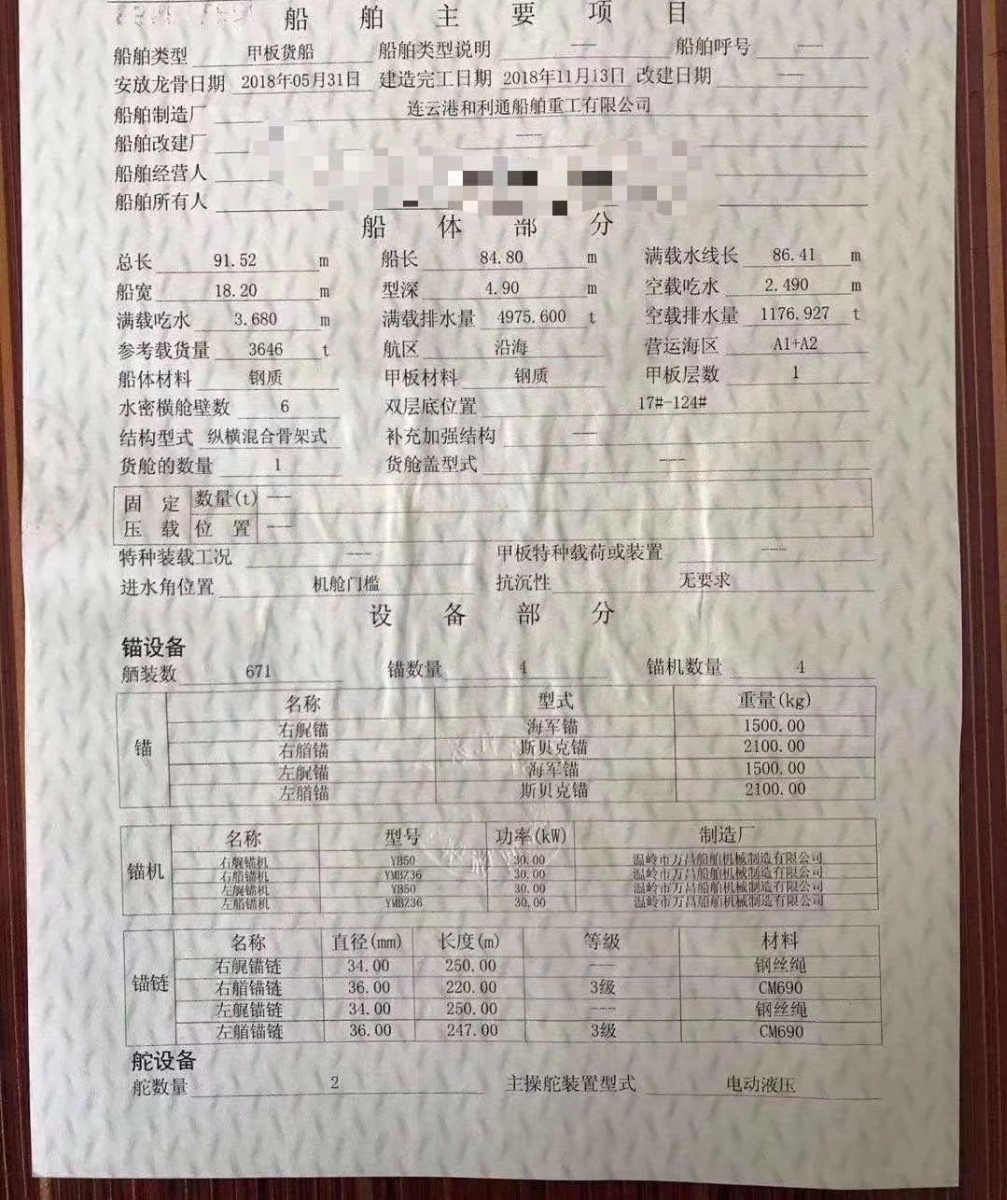 船舶主要项目
船舶类型 甲板货船 船舶类型说明 --- 船舶呼号 ---
安放龙骨日期 2018年05月31日 建造完工日期 2018年11月13日 改建日期 ---
船舶制造厂 连云港和利通船舶重工有限公司
船舶改建厂 ---
船舶经营人
船舶所有人
船体部分
总长 91.52 m 船长 84.80 m 满载水线长 86.41 m
船宽 18.20 m 型深 4.90 m 空载吃水 2.490 m
满载吃水 3.680 m 满载排水量 4975.600 t 空载排水量 1176.927 t
参考载货量 3646 t 航区 沿海 营运海区 A1+A2
船体材料 钢质 甲板材料 钢质 甲板层数 1
水密横舱壁数 6 双层底位置 17#-124#
结构型式 纵横混合骨架式 补充加强结构 ---
货舱的数量 1 货舱盖型式 ---
固定 数量(t) ---
压载 位置 ---
特种装载工况 --- 甲板特种载荷或装置 ---
进水角位置 机舱门槛 抗沉性 无要求
设备部分
锚设备
舾装数 671 锚数量 4 锚机数量 4
名称 型式 重量(kg)
锚
右艉锚 海军锚 1500.00
右艏锚 斯贝克锚 2100.00
左艉锚 海军锚 1500.00
左艏锚 斯贝克锚 2100.00
名称 型号 功率(kW) 制造厂
锚机
右艉锚机 YB50 30.00 温岭市万昌船舶机械制造有限公司
右艏锚机 YMBZ36 30.00 温岭市万昌船舶机械制造有限公司
左艉锚机 YB50 30.00 温岭市万昌船舶机械制造有限公司
左艏锚机 YMBZ36 30.00 温岭市万昌船舶机械制造有限公司
名称 直径(mm) 长度(m) 等级 材料
锚链
右艉锚链 34.00 250.00 --- 钢丝绳
右艏锚链 36.00 220.00 3级 CM690
左艉锚链 34.00 250.00 --- 钢丝绳
左艏锚链 36.00 247.00 3级 CM690
舵设备
舵数量 2 主操舵装置型式 电动液压